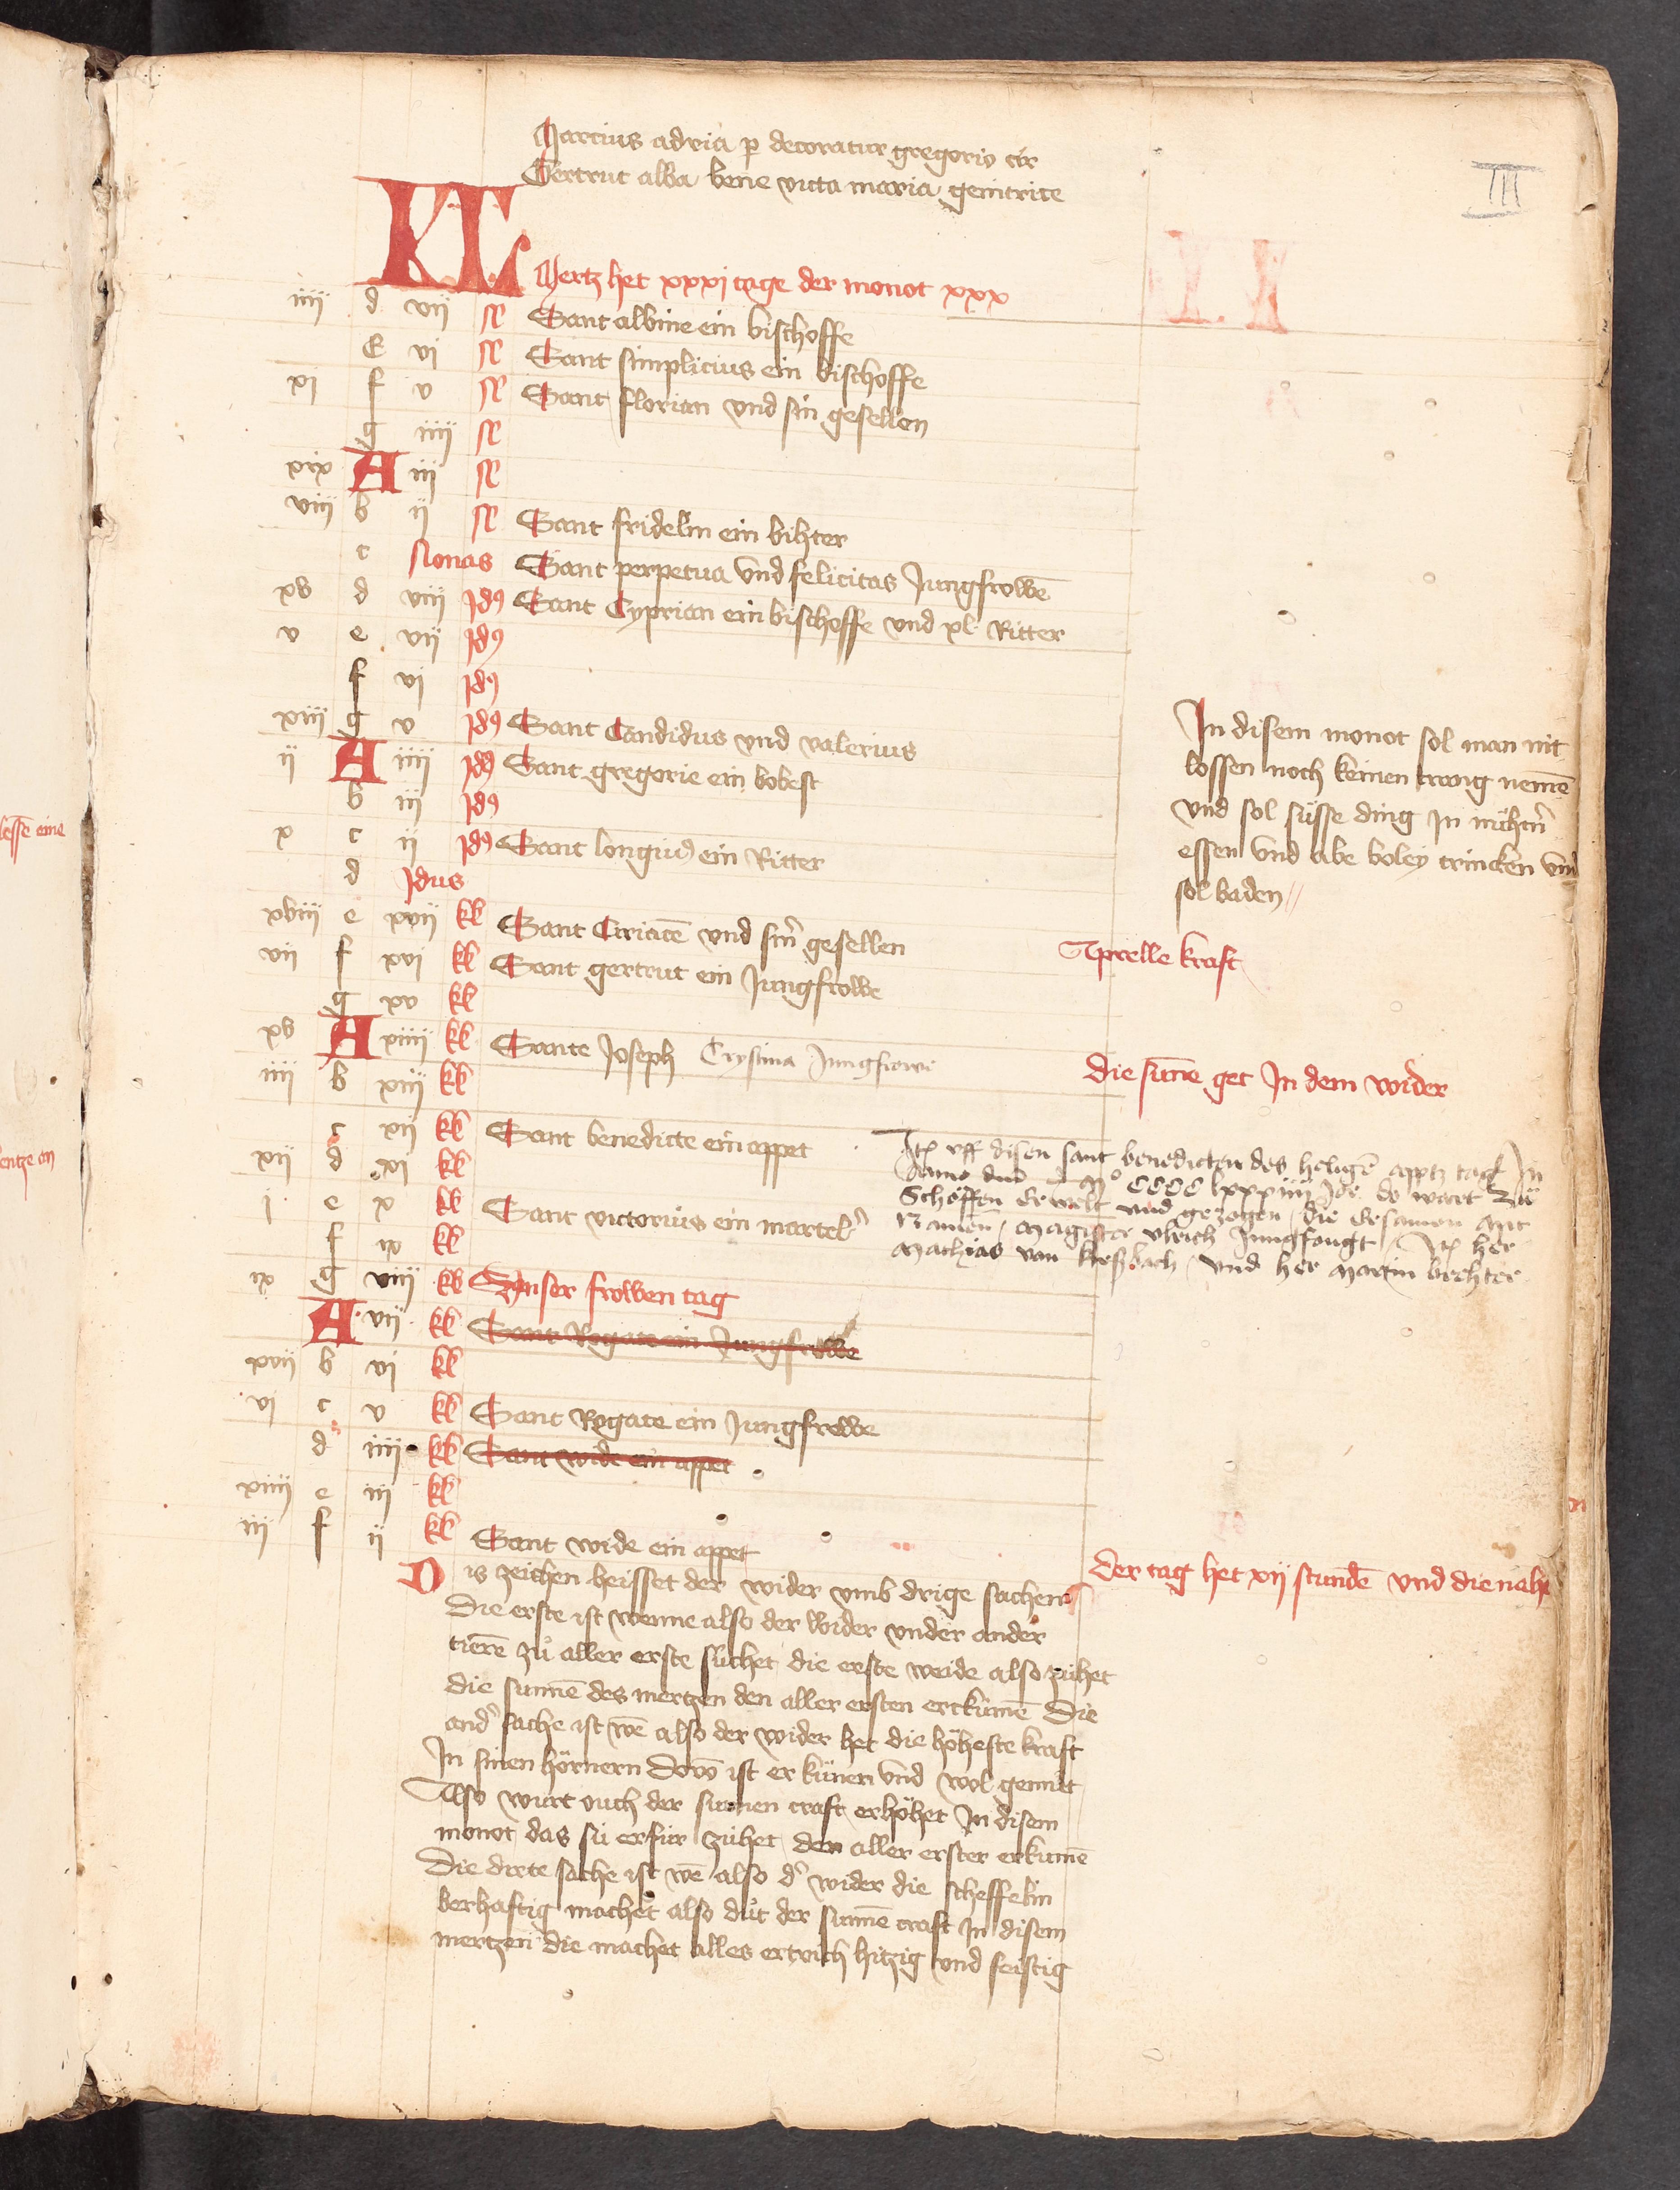 Marcius adria p decoratur gregorio cir
Gertrut alba bene victa maria genitrice
III
KL
Mertz het xxxj tage der monot xxx
iiij d vij N Sant albine ein bischoffe
E vj N Sant simplicius ein bischoffe
xj f v N Sant florian vnd sin gesellen
g iiij N
xix A iij N
viij b ij N Sant fridelin ein bihter
c Nonas Sant perpetua vnd felicitas Jungfrowē
xv d viij Jdꝰ Sant Cyprian ein bischoffe vnd xl Ritter
v e vij Jdꝰ
f vj Jdꝰ
xiij g v Jdꝰ Sant Candidus vnd valerius
ij A iiij Jdꝰ Sant gregorie ein bobest
b iij Jdꝰ
x c ij Jdꝰ Sant longinꝰ ein Ritter
d Jdus
xviij e xvij kl Sant Ciriacē vnd sin gesellen
vij f xvj kl Sant gertrut ein Jungfrowe
g xv kl
xv A xiiij kl Sante Joseph Crystina Jungfrowe
iiij b xiij kl
c xij kl Sant benedicte ein appet
xij d xj kl
j e x kl Sant victorius ein martel
f ix kl
ix g viij kl Vnser frowen tag
A vij kl Sant Rogate ein Jungfrowe
xvij b vj kl
vj c v kl Sant Rogate ein Jungfrowe
d iiij kl Sant wide ein appet
xiiij e iij kl
iij f ij kl Sant wide ein appet
In disem monot sol man nit
lossen noch keinen trang nemē
vnd sol süsse ding in nühtn
essen vnd abe boley trincken vnd
sol baden
Aprelle kraft
die sunne get In dem wider
Itē vff disen sant benedicten des heligē aptz tag In
Anno dm Mº CCCC lxxxiiij Jor do wart zü
Schöffen Erwelt vnd gezogen die Ersamen mit
Namen Magister vlrich Jungfougt Itē her
Mathias von kirszbach vnd her Martin brehter
Der tag het xij stundē vnd die naht
Dis zeichen heisset der wider vmb drige sachen
Die erste ist wenne also der wider vnder ander
tierē zů aller erste sůchet die erste weide also zühet
die sunnē des mertzen den aller ersten ertkümē Die
and sache ist wē also der wider het die höheste kraft
In sinen hörnern Dovō ist er künen vnd wol gemůt
Also wurt ouch der sunnen craft erhöhet In disem
monot das sü erfür zühet den aller erster erkümē
Die dirte sache ist wē also d wider die scheffelin
berhaftig machet also důt der sunnē craft In disem
mertzen die machet alles ertrich hitzig vnd feistig